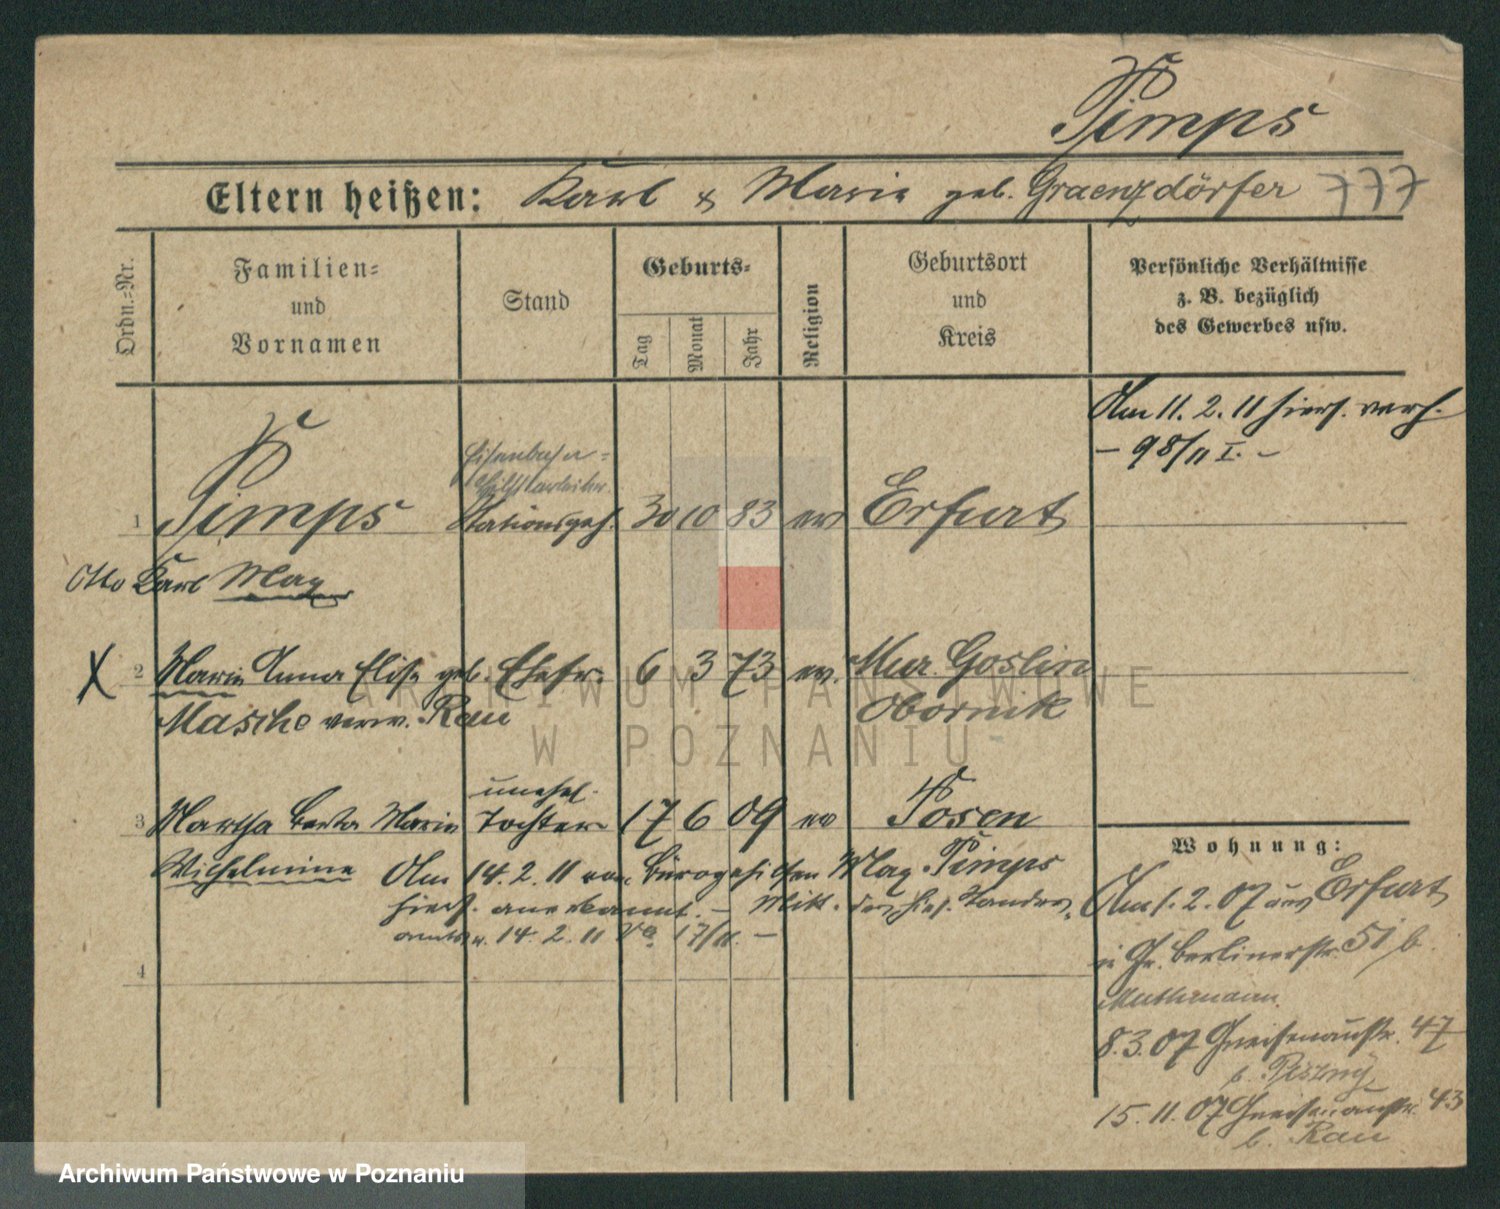 Pimps
Eltern heißen: Karl & Marie geb. Graenzdörfer 777
Ordn.-Nr.
Familien- und Vornamen
Stand
Geburts-
Tag Monat Jahr
Religion
Geburtsort und Kreis
Persönliche Verhältnisse z. B. bezüglich des Gewerbes usw.
Am 11. 2. 11 hiers. verh.
– 98/11 I. –
Eisenbahn-
Hilfsarbeiter
1 Pimps Stationsgeh. 30 10 83 ev Erfurt
Otto Karl Max
X 2 Marie Anna Elise geb. Ehefr. 6 3 73 ev. Mur. Goslin
Masche verw. Rau Obornik
unehel.
3 Martha Berta Marie Tochter 17 6 09 ev Posen
Wilhelmine Am 14. 2. 11 vom Bürogehilfen Max Pimps
hiers. anerkannt. – Mitt. des hies. Standes-
amts v. 14. 2. 11 17/11. –
4
Wohnung:
Am 1. 2. 07 aus Erfurt
in Gr. Berlinerstr. 51 b.
Muthmann.
8. 3. 07 Gneisenaustr. 47
b.
15. 11. 07 Gneisenaustr. 43
b. Rau
ARCHIWUM PAŃSTWOWE
W POZNANIU
Archiwum Państwowe w Poznaniu